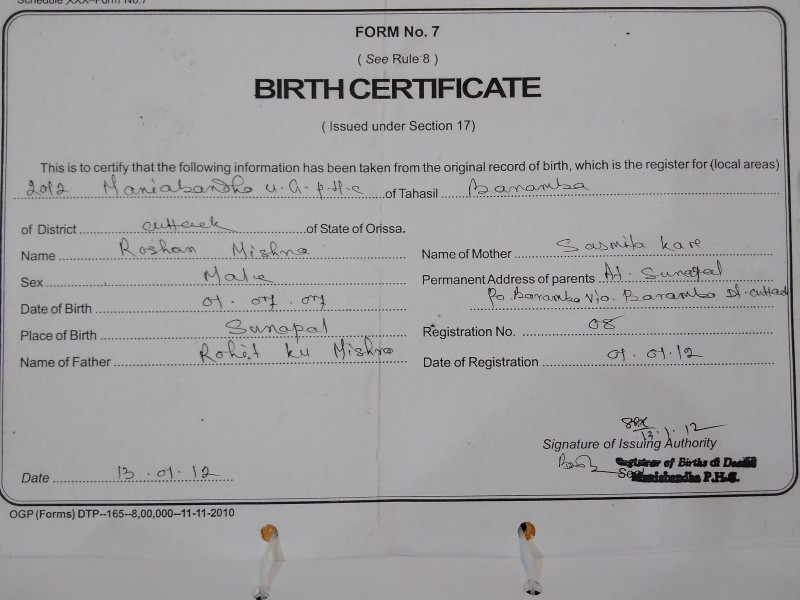 Schedule XXX–Form No.7
FORM No. 7
( See Rule 8 )
BIRTH CERTIFICATE
( Issued under Section 17)
This is to certify that the following information has been taken from the original record of birth, which is the register for (local areas)
2012 Maniabandha U.G.P.H.C of Tahasil Baramba
of District Cuttack of State of Orissa.
Name Roshan Mishra
Sex Male
Date of Birth 01.07.07
Place of Birth Sunapal
Name of Father Rohit ku Mishra
Name of Mother Sasmita kare
Permanent Address of parents At. Sunapal
Po. Baramba Via. Baramba Dt-Cuttack
Registration No. 08
Date of Registration 01.01.12
13.1.12
Signature of Issuing Authority
Registrar of Births & Deaths
Maniabandha P.H.C.
Date 13.01.12
OGP (Forms) DTP--165--8,00,000--11-11-2010